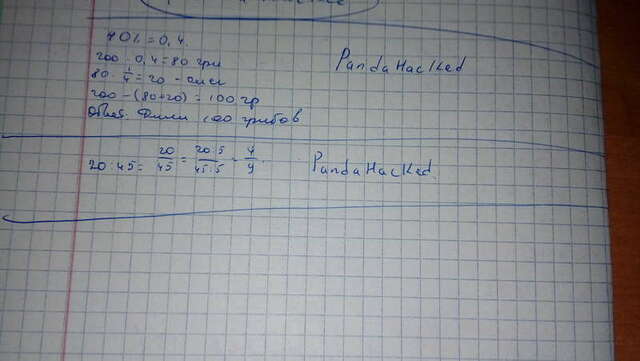 40% = 0,4.
200 · 0,4 = 80 гри
80 · 1/4 = 20 -
200 - (80+20) = 100 гр
Ответ. Фили 100 грибов
PandaHacked
20 : 45 = 20/45 = 20:5/45:5 = 4/9.
PandaHacked.